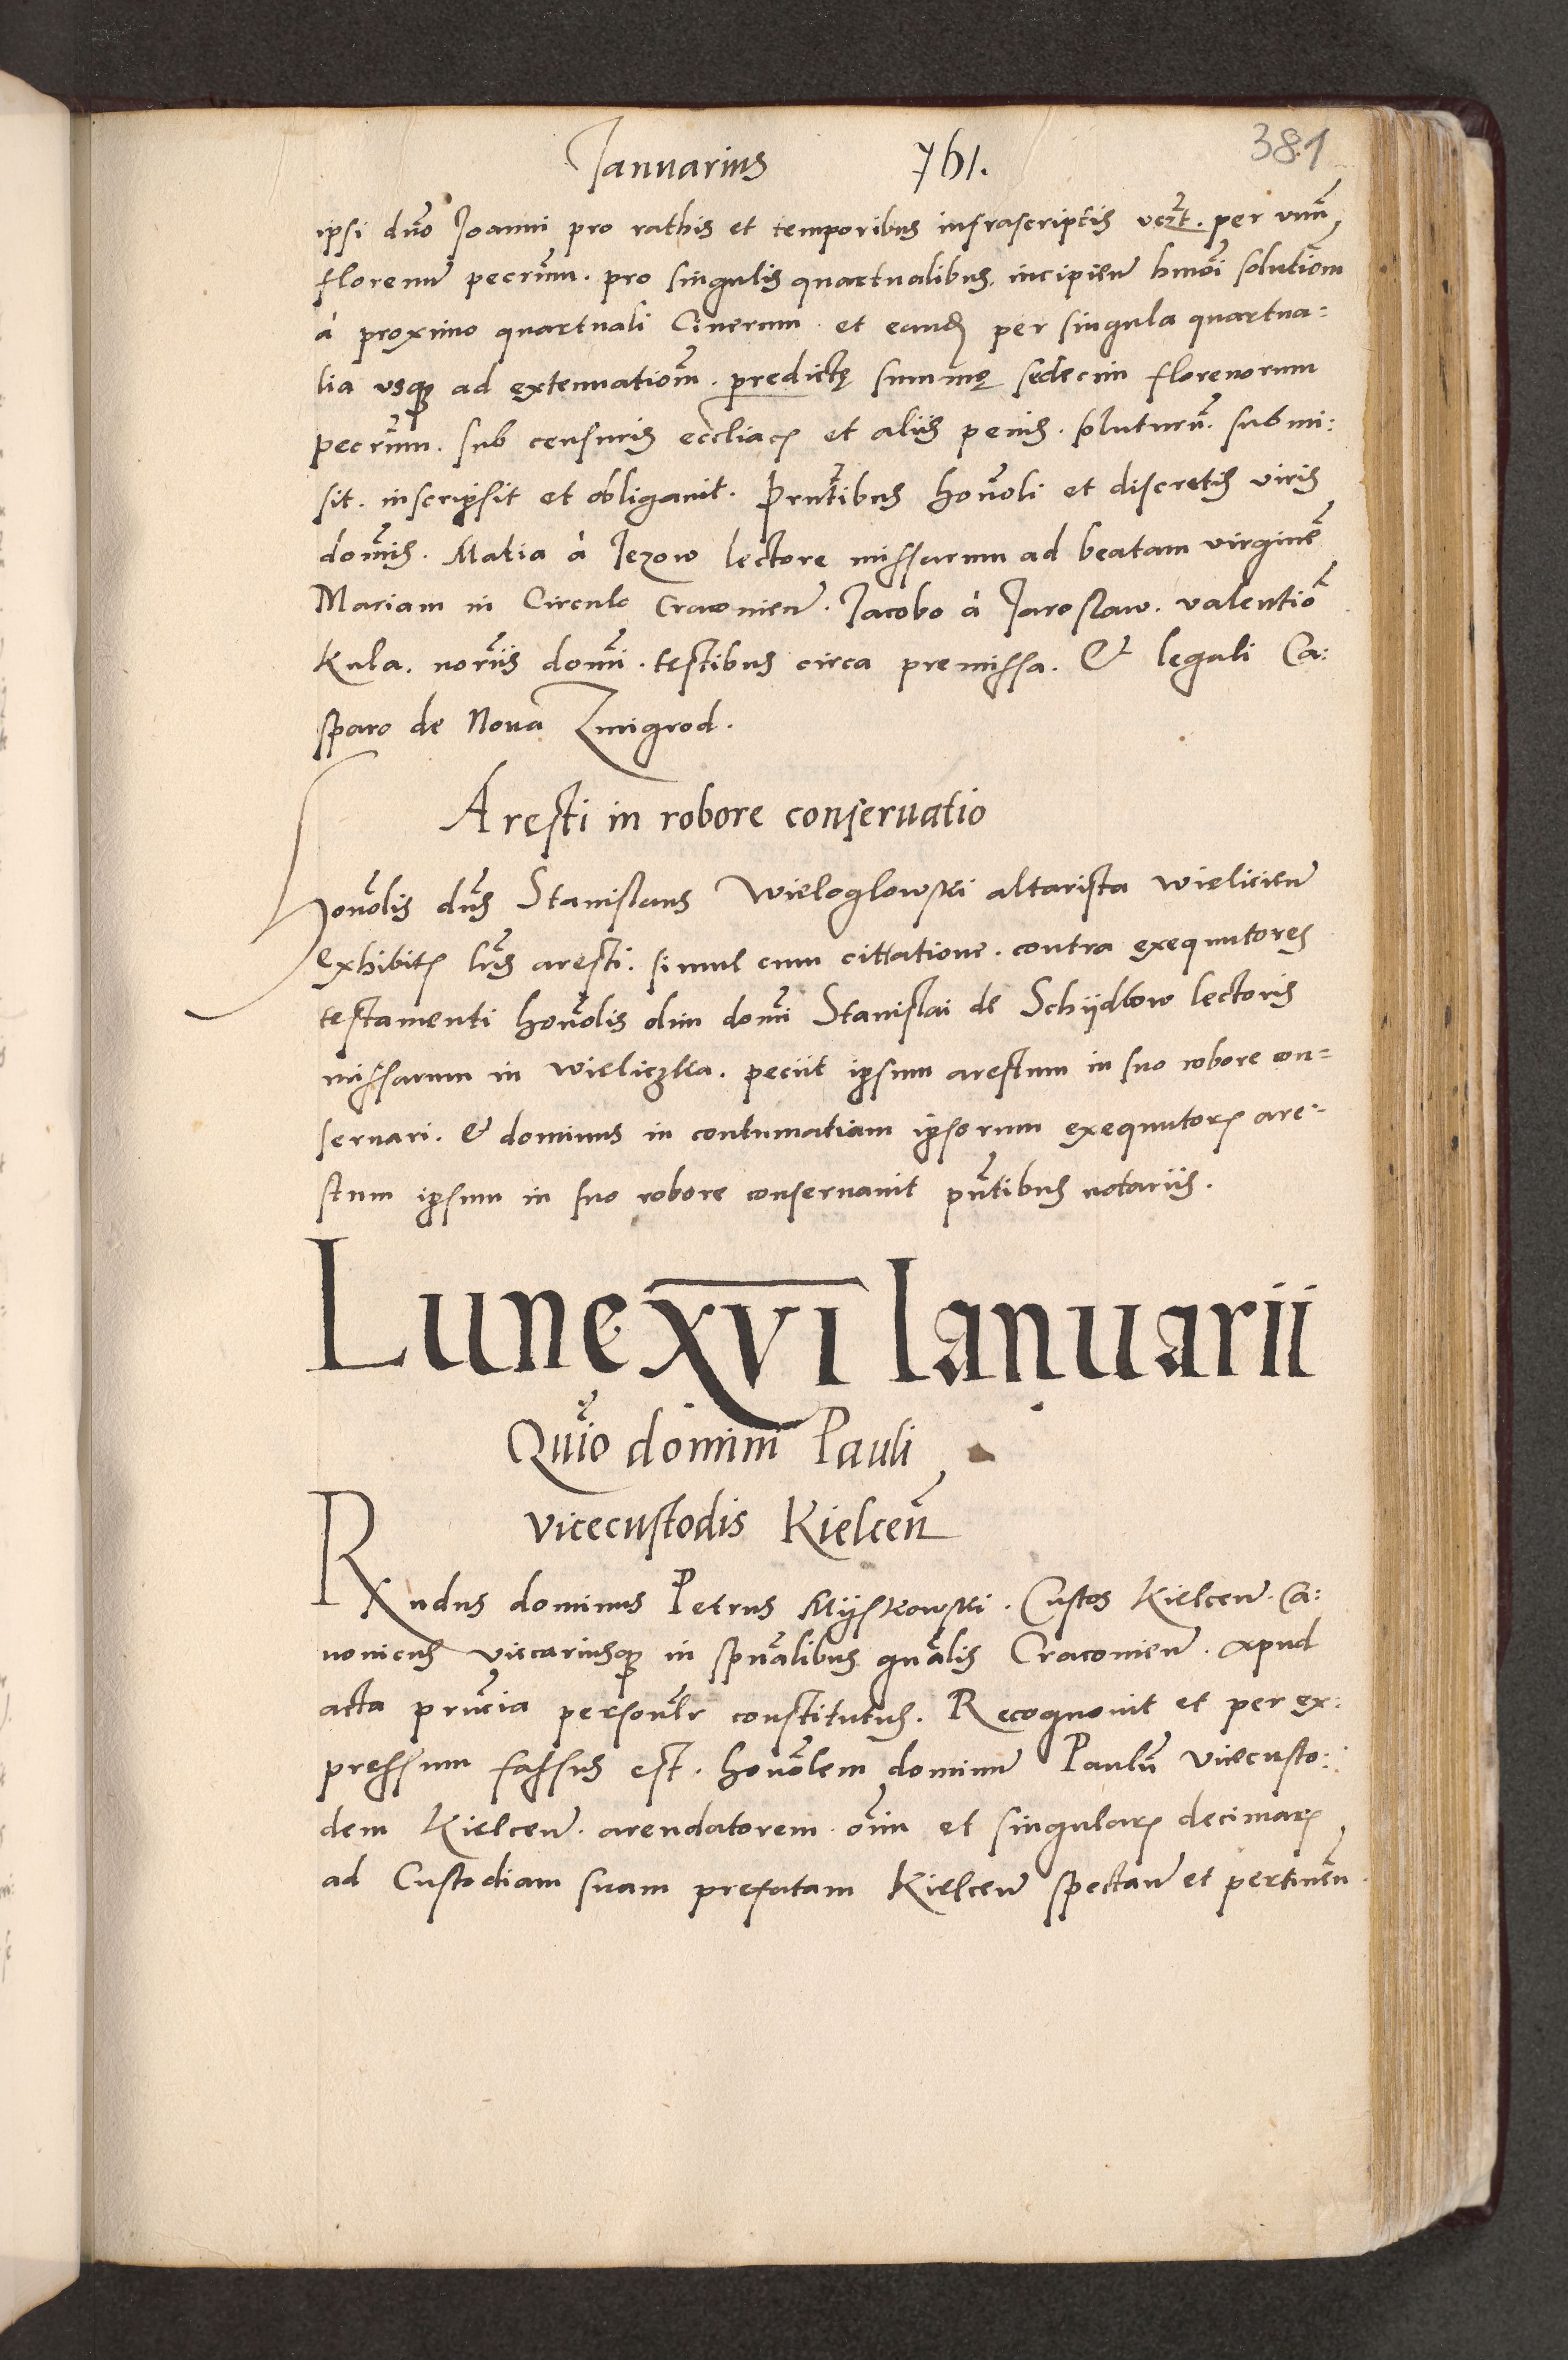 Januarius 761. 381
ipsi dn̄o Joanni pro rathis et temporibus infrascriptis vc̄zt. per vnū
florenū pecr̄iium. pro singulis quartualibus. incipien̄ hmōi solutiōm
à proximo quartuali Cinerum. et eandꝫ per singula quartua:
lia usqꝫ ad extenuatiōm. predictę summę sedecim florenorum
pecr̄iium. sub censuris eccliacꝫ et aliis penis. pluturū. submi:
sit. inscripsit et obligauit. Prn̄tibus honoli et discretis viris
dom̄is. Matia à Jezow lectore missarum ad beatam virginē
Mariam in Circulo Cracouien̄. Jacobo à Jaroslaw. valentiō
Kula. norīis domī. testibus circa premissa. & legali Ca:
sparo de Noua Zmigrod.
Aresti in robore conseruatio
Honōlis dn̄s Stanislaus Wieloglowski altarista Wielicien̄
exhibitꝫ lr̄is aresti. simul cum cittatione. contra exequutores
testamenti honōlis olim domī Stanislai de Schijdlow lectoris
missarum in Wieliczka. peciit ipsum arestum in suo robore con-
seruari. & dominus in contumatiam ipsorum exequutorꝫ are-
stum ipsum in suo robore conseruauit pn̄tibus notariis.
Lune XVI Ianuarii
Quīo domini Pauli
vicecustodis Kielcen̄
Rxndus dominus Petrus Mijskowski. Custos Kielcen̄. Ca:
nonicus viccariusqꝫ in spūalibus gnālis Cracouien̄. apud
acta prn̄cia personlr̄ constitutus. Recognouit et per ex:
pressum fassus est. honōlem dominū Paulū vicecusto:
dem Kielcen̄. arendatorem. om̄iu et singularꝫ decimarꝫ
ad Custodiam suam prefatam Kielcen̄ spectan̄ et pertinēn.